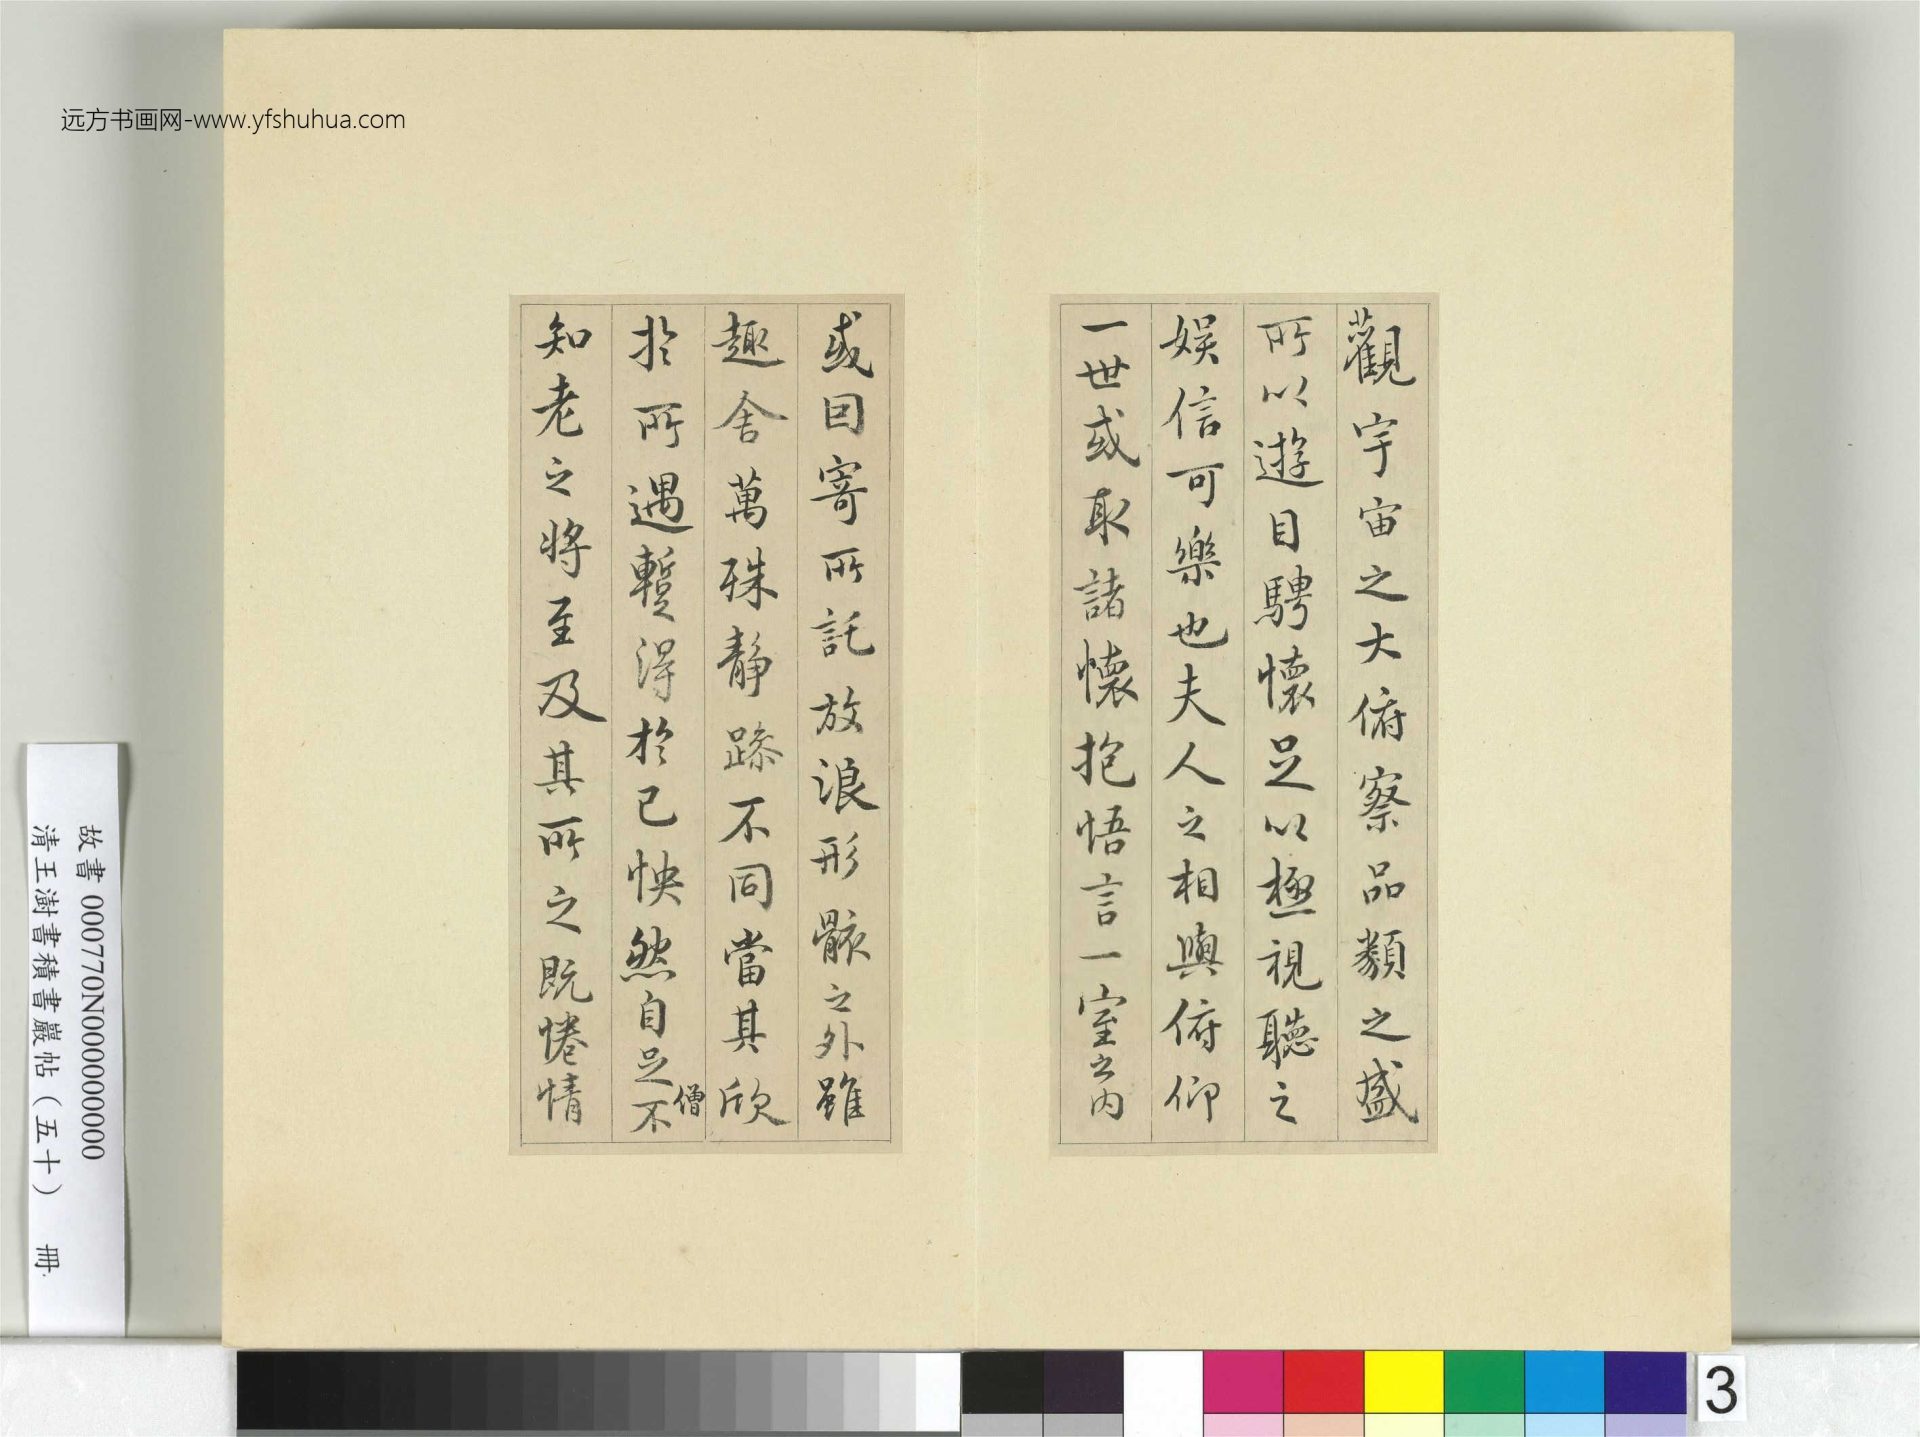 远方书画网-www.yfshuhua.com
觀宇宙之大俯察品類之盛
所以遊目騁懷足以極視聽之
娛信可樂也夫人之相與俯仰
一世或取諸懷抱悟言一室之內
或因寄所託放浪形骸之外雖
趣舍萬殊靜躁不同當其欣
於所遇暫得於己怏然自足不
僧
知老之將至及其所之既惓情
故書 000770N000000000
清王澍書積書巖帖(五十) 冊
3